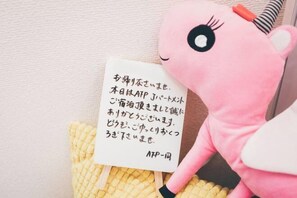 お帰りなさいませ。
本日はATP アパートメント
ご宿泊頂きまして誠に
ありがとうございます。
どうぞ、ごゆっくりおくつ
ろぎ下さいませ。
ATP一同